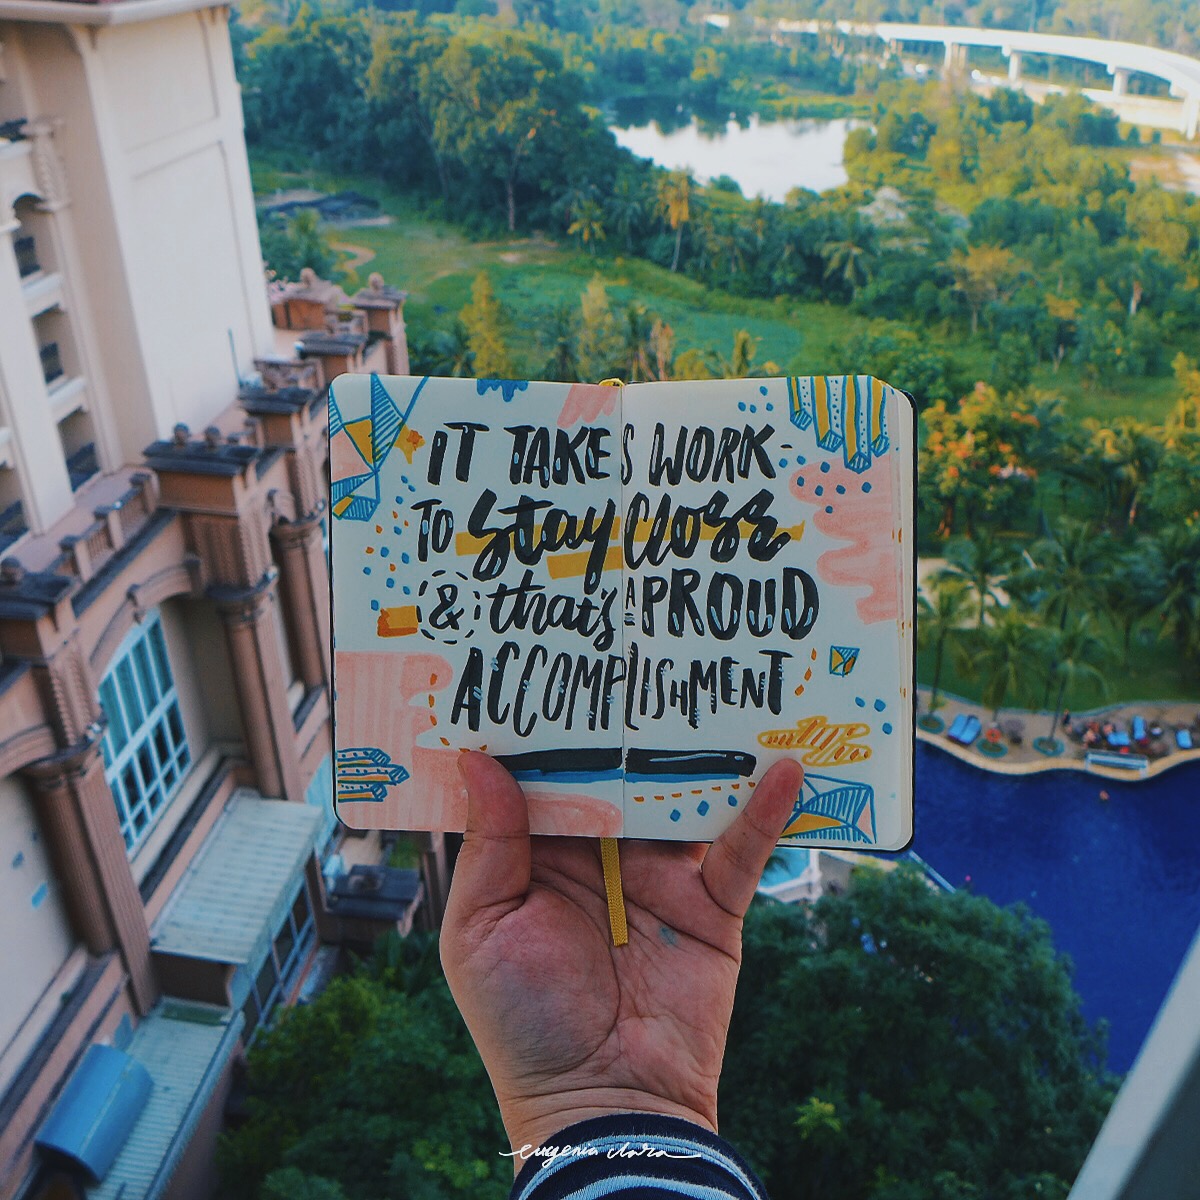 IT TAKES WORK-
TO stay close
& that's A PROUD
ACCOMPLISHMENT
eugenia clara